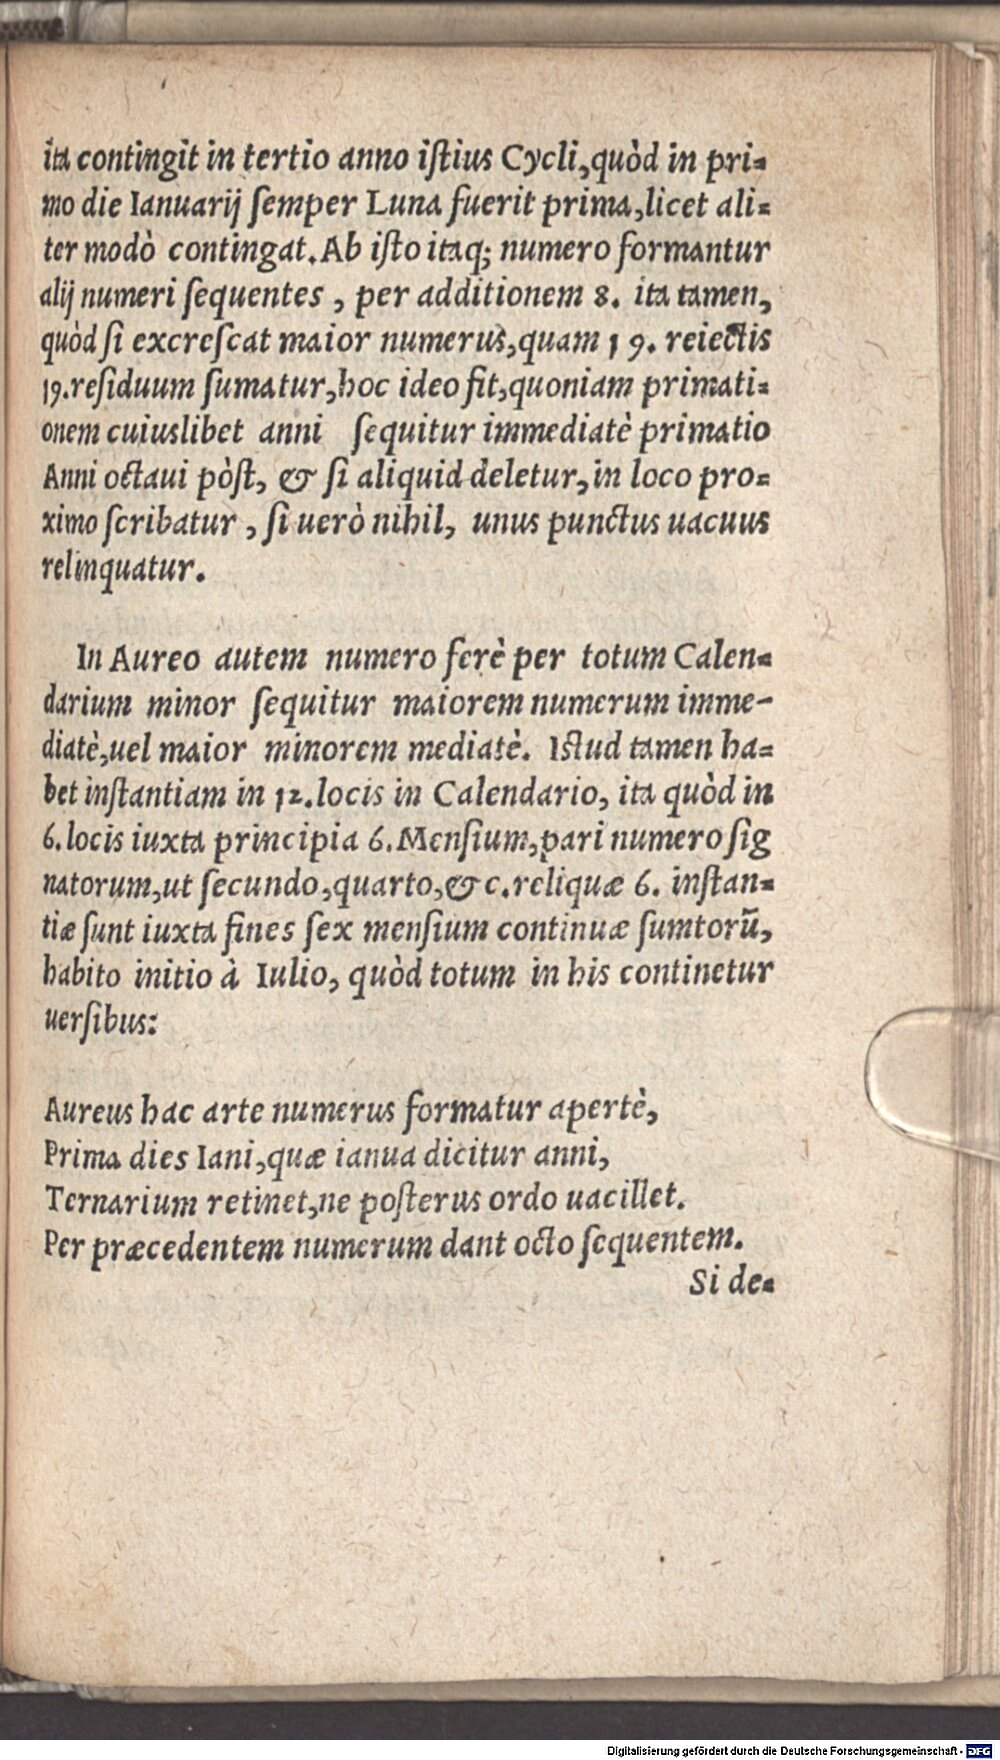 ita contingit in tertio anno iſtius Cycli,quòd in pri-
mo die Ianuarij ſemper Luna fuerit prima,licet ali-
ter modò contingat.Ab iſto itaq; numero formantur
alij numeri ſequentes , per additionem 8. ita tamen,
quòd ſi excreſcat maior numerus,quam 19. reiectis
19.reſiduum ſumatur,hoc ideo fit,quoniam primati-
onem cuiuslibet anni ſequitur immediatè primatio
Anni octaui pòſt, & ſi aliquid deletur,in loco pro-
ximo ſcribatur , ſi uerò nihil, unus punctus uacuus
relinquatur.
In Aureo autem numero ferè per totum Calen-
darium minor ſequitur maiorem numerum imme-
diatè,uel maior minorem mediatè. Iſtud tamen ha-
bet inſtantiam in 12.locis in Calendario, ita quòd in
6.locis iuxta principia 6.Menſium,pari numero ſig
natorum,ut ſecundo,quarto,&c.reliquæ 6. inſtan-
tiæ ſunt iuxta fines ſex menſium continuæ ſumtorū,
habito initio à Iulio, quòd totum in his continetur
uerſibus:
Aureus hac arte numerus formatur apertè,
Prima dies Iani,quæ ianua dicitur anni,
Ternarium retinet,ne poſterus ordo uacillet.
Per præcedentem numerum dant octo ſequentem.
Si de-
Digitalisierung gefördert durch die Deutsche Forschungsgemeinschaft - DFG